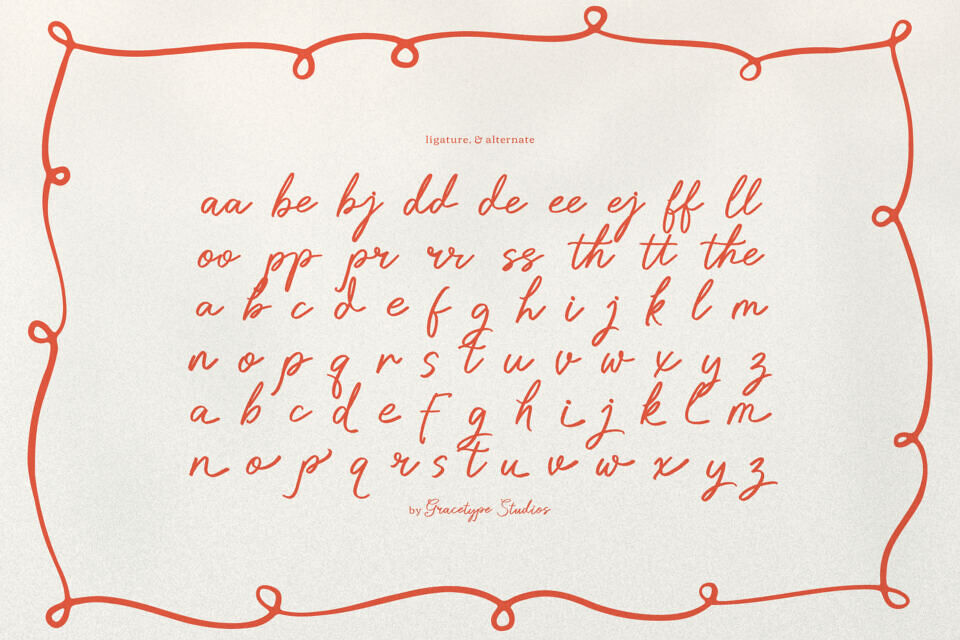 ligature, & alternate
aa be bj dd de ee ej ff ll
oo pp pr rr ss th tt the
a b c d e f g h i j k l m
n o p q r s t u v w x y z
a b c d e f g h i j k l m
n o p q r s t u v w x y z
by Gracetype Studios